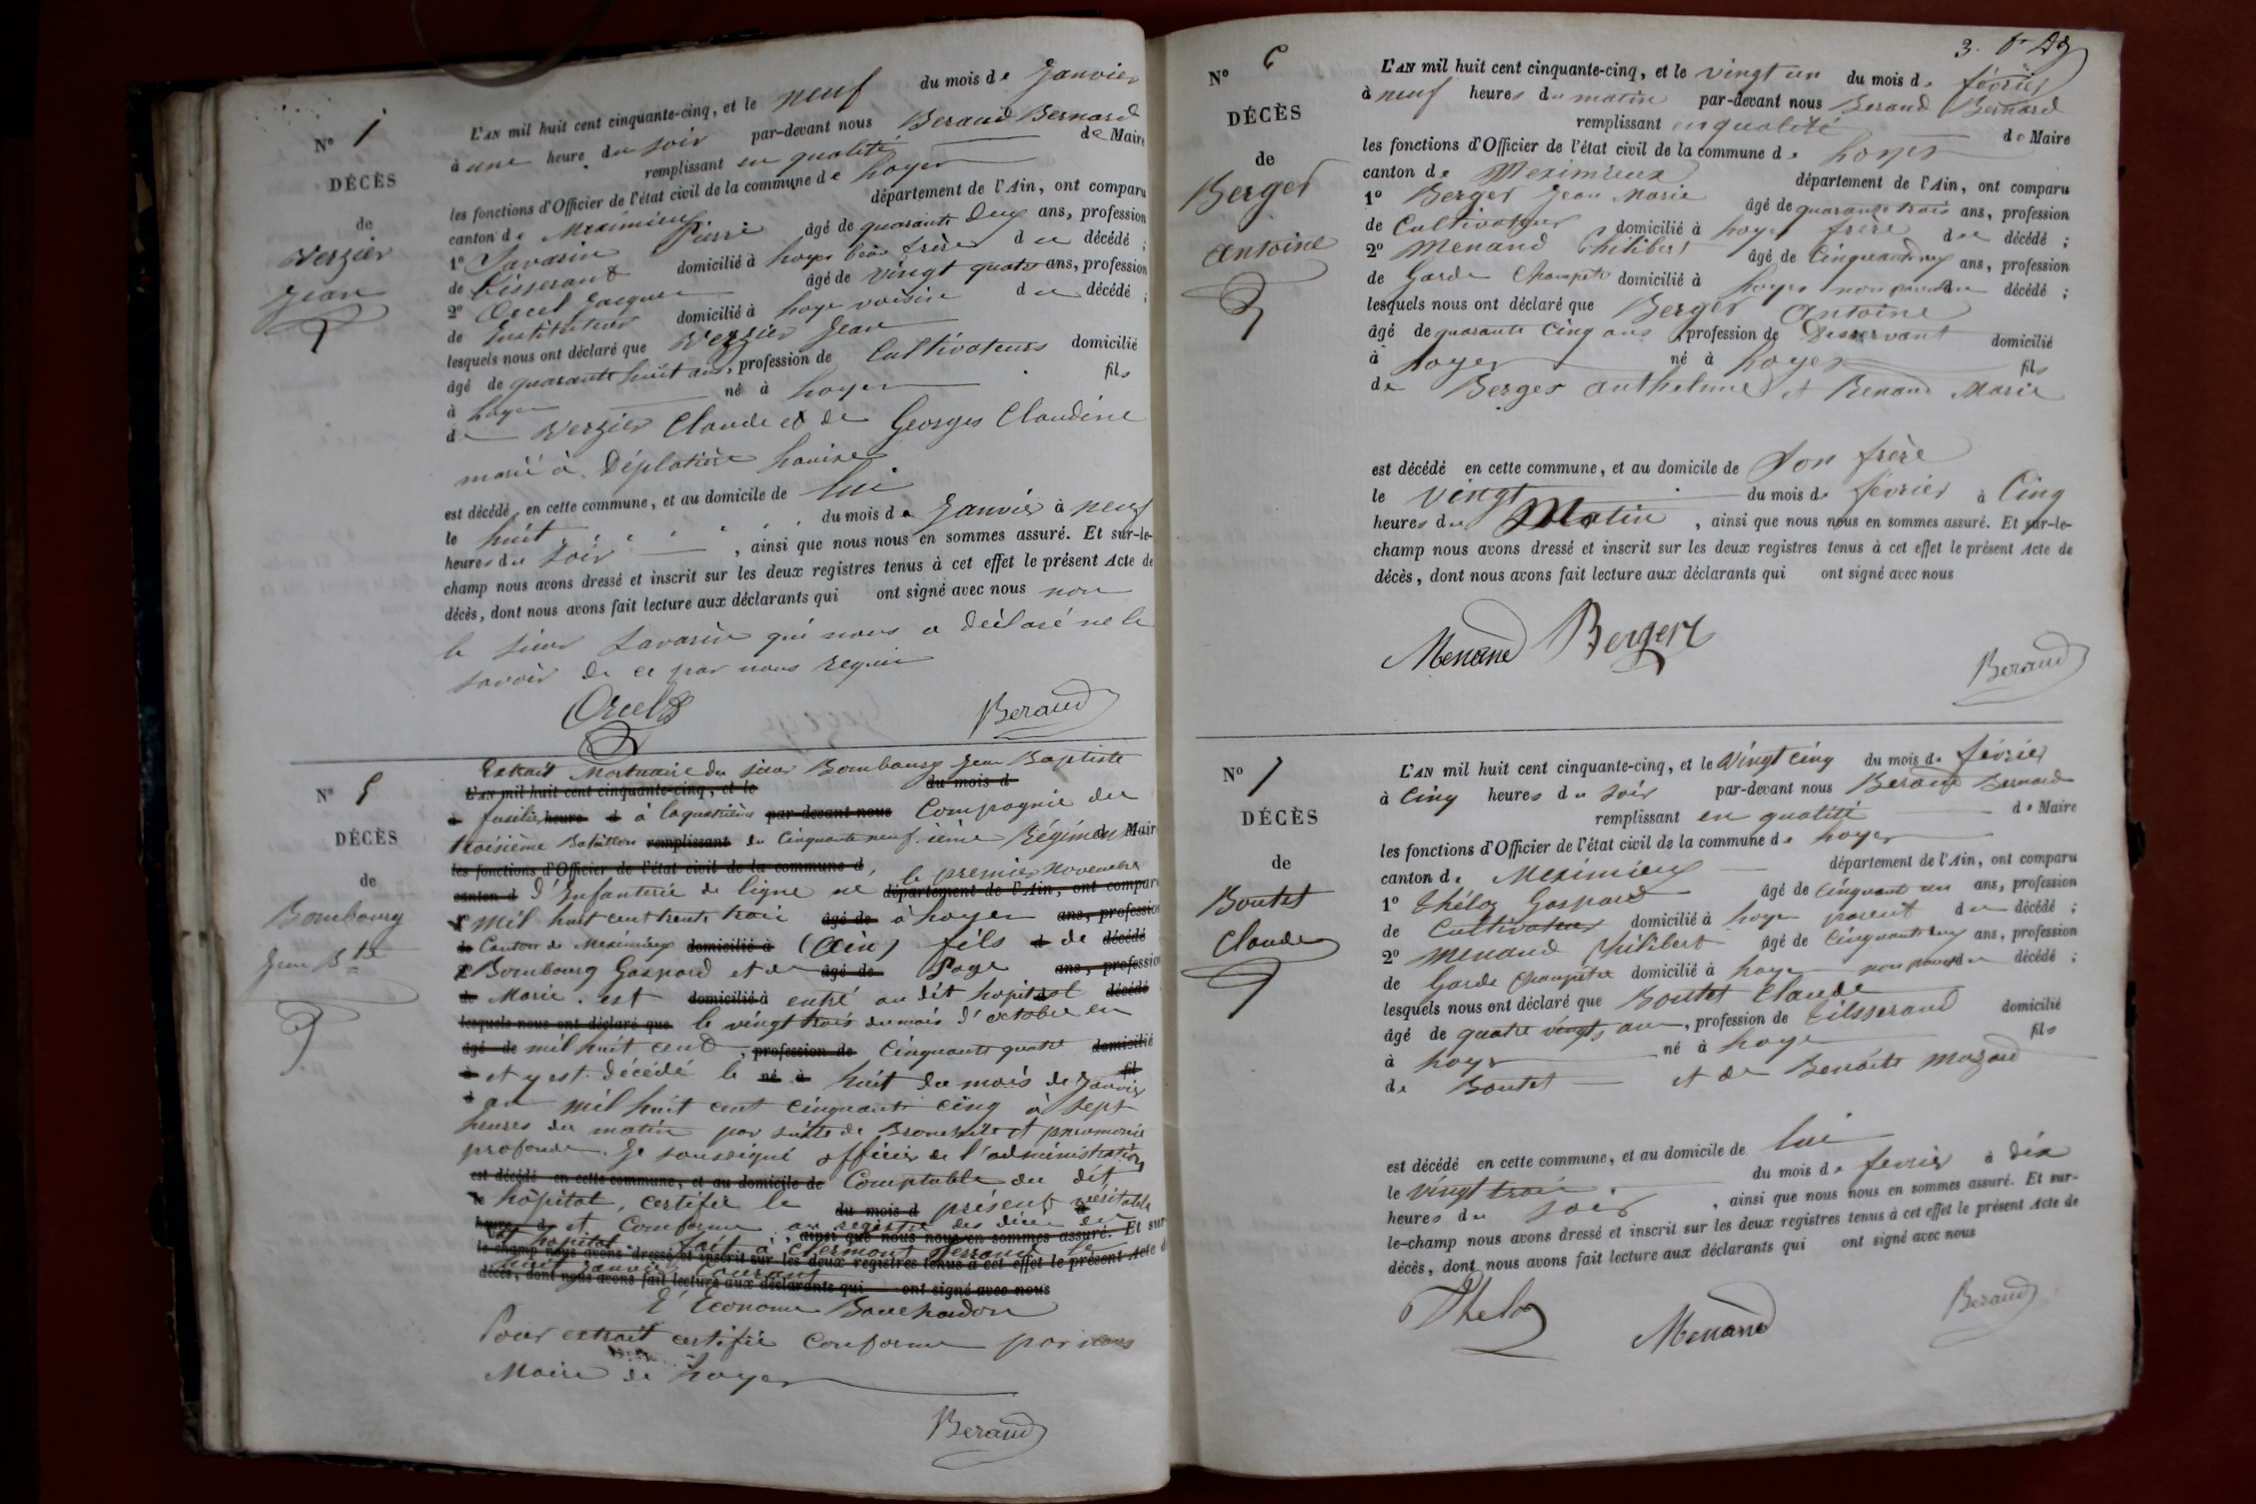 N° 1
DÉCÈS
de
Verzier
Jean
L'AN mil huit cent cinquante-cinq, et le neuf du mois de Janvier
à une heure du soir par-devant nous Beraud Bernard
remplissant en qualité de Maire
les fonctions d'Officier de l'état civil de la commune de Loyes
canton de Meximieux département de l'Ain, ont comparu
1° Savarin Pierre âgé de quarante deux ans, profession
de tisserand domicilié à Loyes beau frère du décédé ;
2° Orcel Jacques âgé de vingt quatre ans, profession
de Instituteur domicilié à Loyes voisin du décédé ;
lesquels nous ont déclaré que Verzier Jean
âgé de quarante huit ans, profession de Cultivateurs domicilié
à Loyes né à Loyes fils
de Verzier Claude et de Georges Claudine
marié à Déplatière
est décédé en cette commune, et au domicile de lui
le huit du mois de Janvier à neuf
heures du soir , ainsi que nous nous en sommes assuré. Et sur-le-
champ nous avons dressé et inscrit sur les deux registres tenus à cet effet le présent Acte de
décès, dont nous avons fait lecture aux déclarants qui ont signé avec nous non
le sieur Savarin qui nous a déclaré ne le
savoir de ce par nous requis
Orcel
Beraud
N° 5
DÉCÈS
de
Bombourg
Jean Bte
Extrait Mortuaire du sieur Bombourg Jean Baptiste
L'AN mil huit cent cinquante-cinq, et le du mois d
à fusilier heure d à la quatrième par-devant nous Compagnie du
troisième Bataillon remplissant du Cinquante neuf.ième Régiment de Maire
les fonctions d'Officier de l'état civil de la commune d
canton d d'Infanterie de ligne né le premier Novembre département de l'Ain, ont comparu
1° mil huit cent trente trois âgé de à Loyes ans, profession
de Canton de Meximieux domicilié à (Ain) fils d de décédé
2° Bombourg Gaspard et de âgé de Page ans, profession
de Marie. est domicilié à entré au dit hopital décédé
lesquels nous ont déclaré que le vingt trois du mois d'octobre en
âgé de mil huit cent, profession de Cinquante quatre domicilié
à et y est décédé le né à huit du mois de Janvier fil
d an mil huit cent cinquante cinq à sept
heures du matin par suite de Bronchite et pneumonie
profonde. Je soussigné officier de l'administration
est décédé en cette commune, et au domicile de Comptable du dit
le hôpital, certifie le du mois d présent véritable
heures d et Conforme au registre des décès du , ainsi que nous nous en sommes assuré. Et sur-
dit hopital. fait à Clermont Ferrand le
le-champ nous avons dressé et inscrit sur les deux registres tenus à cet effet le présent Acte d
huit Janvier courant
décès, dont nous avons fait lecture aux déclarants qui ont signé avec nous
L'Econome Bouchardon
Pour extrait certifié Conforme par nous
Maire de Loyes
Beraud
3.
N° 6
DÉCÈS
de
Berger
Antoine
L'AN mil huit cent cinquante-cinq, et le vingt un du mois de février
à neuf heures du matin par-devant nous Beraud Bernard
remplissant en qualité de Maire
les fonctions d'Officier de l'état civil de la commune de Loyes
canton de Meximieux département de l'Ain, ont comparu
1° Berger Jean Marie âgé de quarante trois ans, profession
de Cultivateur domicilié à Loyes frère du décédé ;
2° Menand Philibert âgé de Cinquante deux ans, profession
de Garde Champetre domicilié à Loyes non parent du décédé ;
lesquels nous ont déclaré que Berger Antoine
âgé de quarante cinq ans, profession de Desservant domicilié
à Loyes né à Loyes fils
de Berger Anthelme et Renaud Marie
est décédé en cette commune, et au domicile de Son frère
le vingt du mois de février à Cinq
heures du Matin , ainsi que nous nous en sommes assuré. Et sur-le-
champ nous avons dressé et inscrit sur les deux registres tenus à cet effet le présent Acte de
décès, dont nous avons fait lecture aux déclarants qui ont signé avec nous
Menand Berger
Beraud
N° 7
DÉCÈS
de
Boutet
Claude
L'AN mil huit cent cinquante-cinq, et le Vingt cinq du mois de février
à Cinq heures du soir par-devant nous Beraud Bernard
remplissant en qualité de Maire
les fonctions d'Officier de l'état civil de la commune de Loyes
canton de Meximieux département de l'Ain, ont comparu
1° Théloz Gaspard âgé de cinquant un ans, profession
de Cultivateur domicilié à Loyes parent du décédé ;
2° Menand Philibert âgé de Cinquante deux ans, profession
de Garde Champêtre domicilié à Loyes non parent du décédé ;
lesquels nous ont déclaré que Boutet Claude
âgé de quatre vingts ans, profession de tilsserand domicilié
à Loyes né à Loyes fils
de Boutet et de Benoite
est décédé en cette commune, et au domicile de lui
le vingt trois du mois de fevrier à dix
heures du soir , ainsi que nous nous en sommes assuré. Et sur-
le-champ nous avons dressé et inscrit sur les deux registres tenus à cet effet le présent Acte de
décès, dont nous avons fait lecture aux déclarants qui ont signé avec nous
Theloz
Menand
Beraud